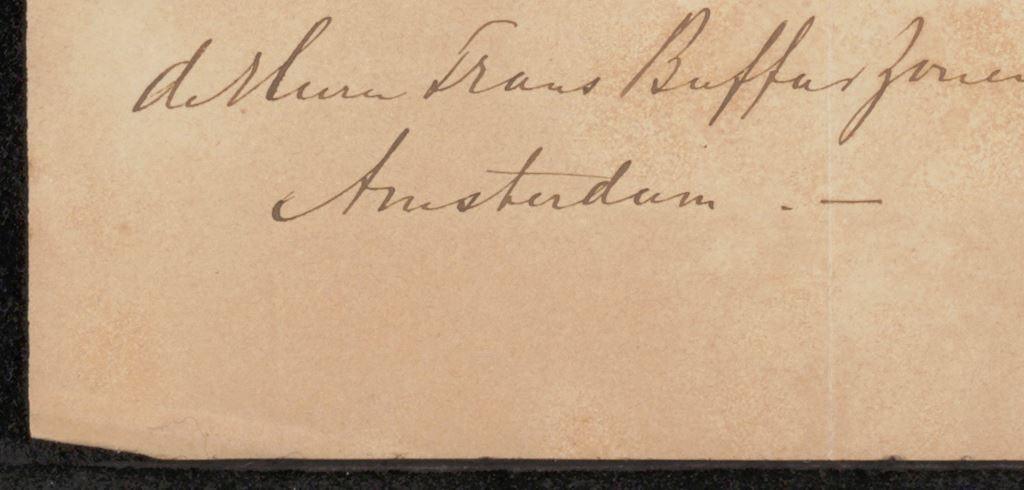 de Heeren Frans Buffa & Zonen
Amsterdam . —